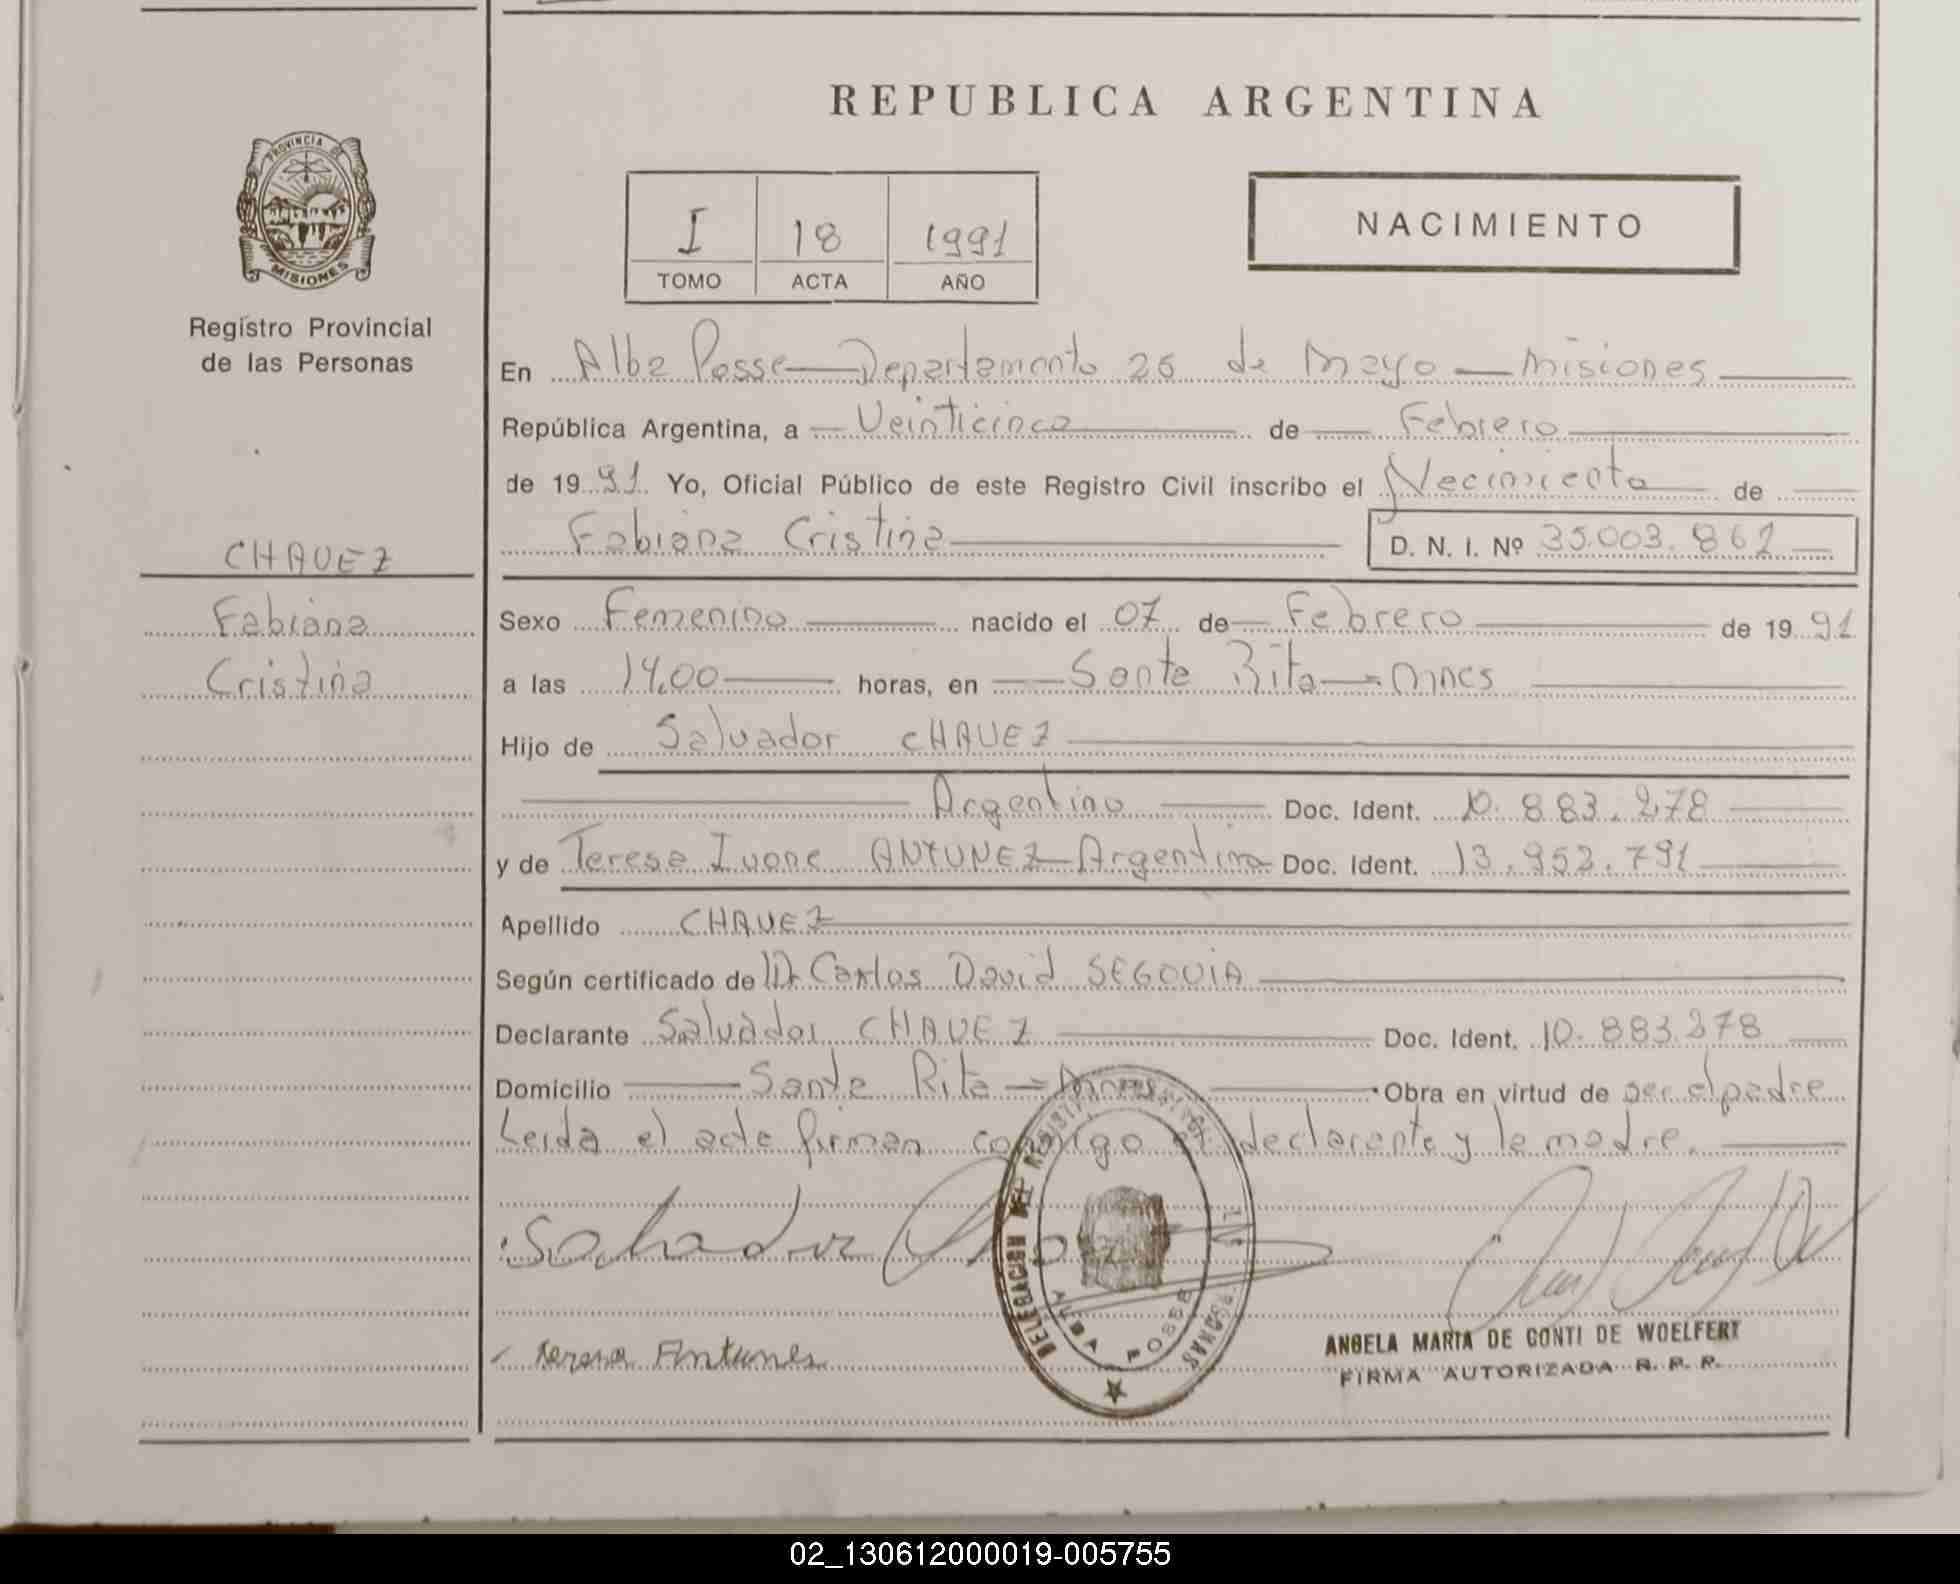 REPUBLICA ARGENTINA
PROVINCIA DE
MISIONES
Registro Provincial
de las Personas
I 18 1991
TOMO ACTA AÑO
NACIMIENTO
En Alba Posse Departamento 25 de Mayo Misiones
República Argentina, a Veinticinco de Febrero
de 1991 Yo, Oficial Público de este Registro Civil inscribo el Necimiento de
Fabiana Cristina D. N. I. Nº 35.003.862
CHAVEZ
Fabiana
Cristina
Sexo Femenino nacido el 07 de Febrero de 1991
a las 14,00 horas, en Santa Rita Mnes
Hijo de Salvador CHAVEZ
Argentino Doc. Ident. 10.883.278
y de Teresa Ivone ANTUNEZ Argentina Doc. Ident. 13.952.791
Apellido CHAVEZ
Según certificado de Dr Carlos David SEGOVIA
Declarante Salvador CHAVEZ Doc. Ident. 10.883.278
Domicilio Santa Rita Mnes Obra en virtud de ser el padre
Leida el acta firman conmigo el declarante y la madre.
Salvador
DELEGACION DEL REGISTRO PERSONAS
ALBA POSSE
teresa Antunes
ANGELA MARIA DE CONTI DE WOELFERT
FIRMA AUTORIZADA R. P. P.
02_130612000019-005755